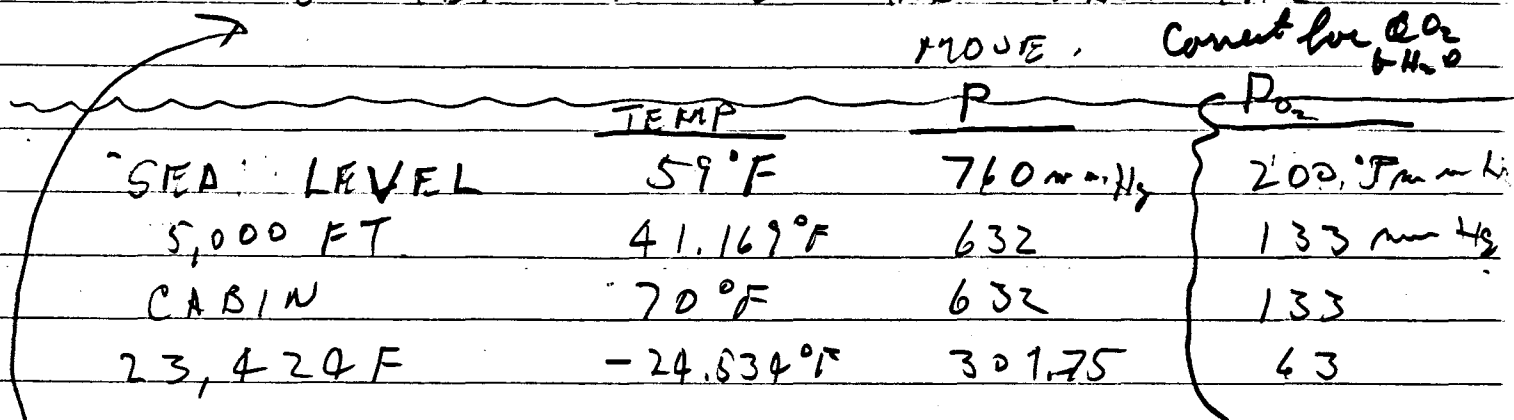 MOVE. Correct for O2
+ H2O
TEMP P PO2
SEA LEVEL 59°F 760 mm Hg 200.5 mm H
5,000 FT 41.169°F 632 133 mm Hg
CABIN 70°F 632 133
23,424F -24.534°F 301.75 63